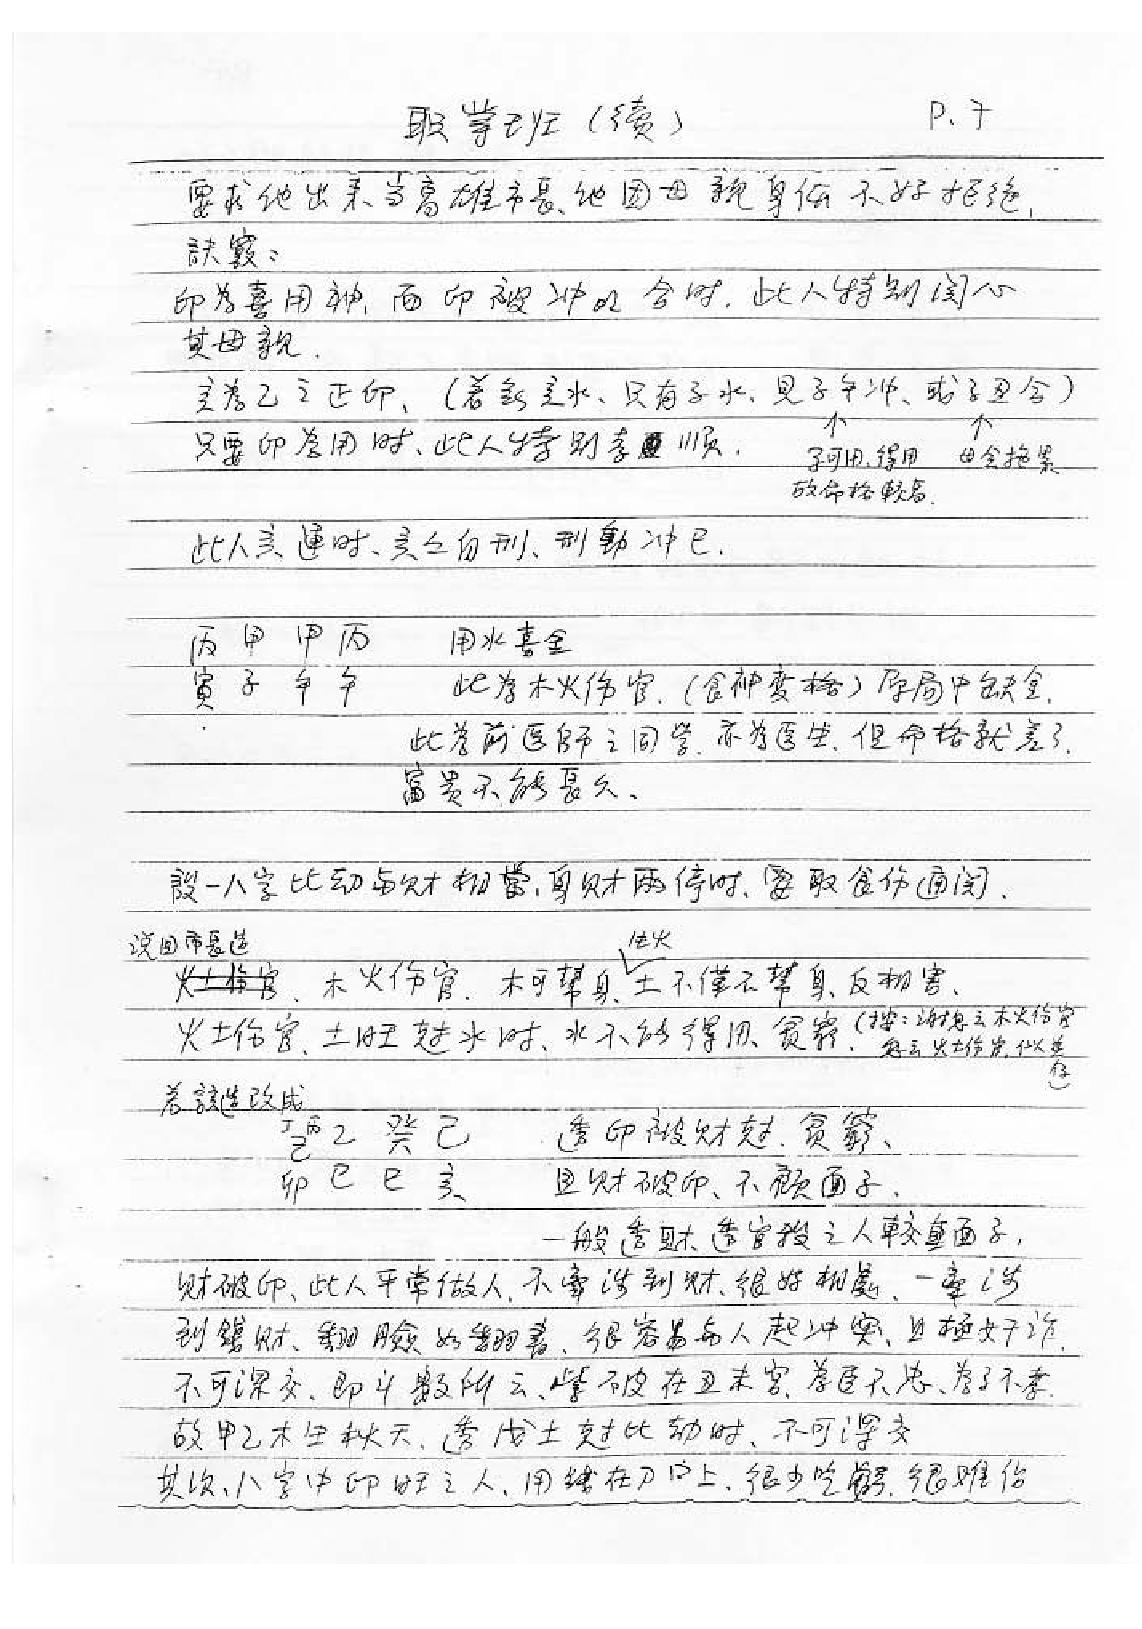 职業班(續) P.7
要求他出来当高雄市長、他因母親身体不好拒绝,
訣竅:
印为喜用神,而印被冲或合时,此人特别関心
其母親.
亥为乙之正印、(若缺亥水、只有子水、見子午冲、或子丑合)
只要印为用时、此人特别孝順. 子可用,得用 母会拖累
故命格較高.
此人亥運时、亥亥自刑、刑動冲巳.
丙甲甲丙 用水喜金
寅子午午 此为木火伤官.(食神变格)原局中缺金.
此为前医師之同学.亦为医生.但命格就差了.
富贵不能長久、
設一八字比劫与财相當,身财两停时、要取食伤通関.
説回市長造 生火
火土伤官、木火伤官、木可幫身、土不僅不幫身、反相害、
火土伤官、土旺尅水时、水不能得用、貧窮、
若該造改成
丁丙己乙癸己 透印被财尅.貧窮、
卯巳巳亥 且财破印、不顧面子、
一般透財、透官殺之人較重面子,
财破印、此人平常做人、不牽涉到财、很好相處、一牽涉
到錢财、翻臉如翻書、很容易与人起冲突、且極奸诈.
不可深交、即斗數所云、紫破在丑未宮、为臣不忠、为子不孝.
故甲乙木生秋天、透戊土尅比劫时、不可深交
其次、八字中印旺之人、用錢在刀口上、很少吃虧、很難佔